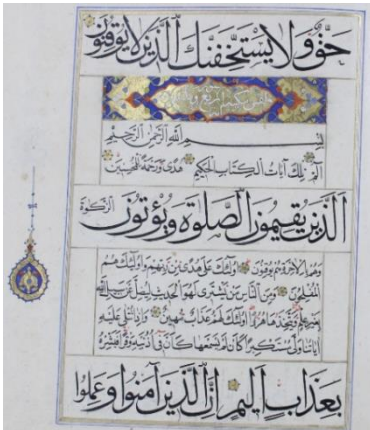 حَقٌّ وَلَا يَسْتَخِفَّنَّكَ الَّذِينَ لَا يُوقِنُونَ
بِسْمِ اللَّهِ الرَّحْمٰنِ الرَّحِيمِ
الم تِلْكَ آيَاتُ الْكِتَابِ الْحَكِيمِ هُدًى وَرَحْمَةً لِلْمُحْسِنِينَ
الَّذِينَ يُقِيمُونَ الصَّلٰوةَ وَيُؤْتُونَ الزَّكٰوةَ
وَهُمْ بِالْآخِرَةِ هُمْ يُوقِنُونَ اُولٰئِكَ عَلَى هُدًى مِنْ رَبِّهِمْ وَاُولٰئِكَ هُمُ
الْمُفْلِحُونَ وَمِنَ النَّاسِ مَنْ يَشْتَرِى لَهْوَ الْحَدِيثِ لِيُضِلَّ عَنْ سَبِيلِ اللَّهِ
بِغَيْرِ عِلْمٍ وَيَتَّخِذَهَا هُزُوًا اُولٰئِكَ لَهُمْ عَذَابٌ مُهِينٌ وَاِذَا تُتْلَى عَلَيْهِ
آيَاتُنَا وَلَّى مُسْتَكْبِرًا كَأَنْ لَمْ يَسْمَعْهَا كَأَنَّ فِى اُذُنَيْهِ وَقْرًا فَبَشِّرْهُ
بِعَذَابٍ اَلِيمٍ اِنَّ الَّذِينَ آمَنُوا وَعَمِلُوا